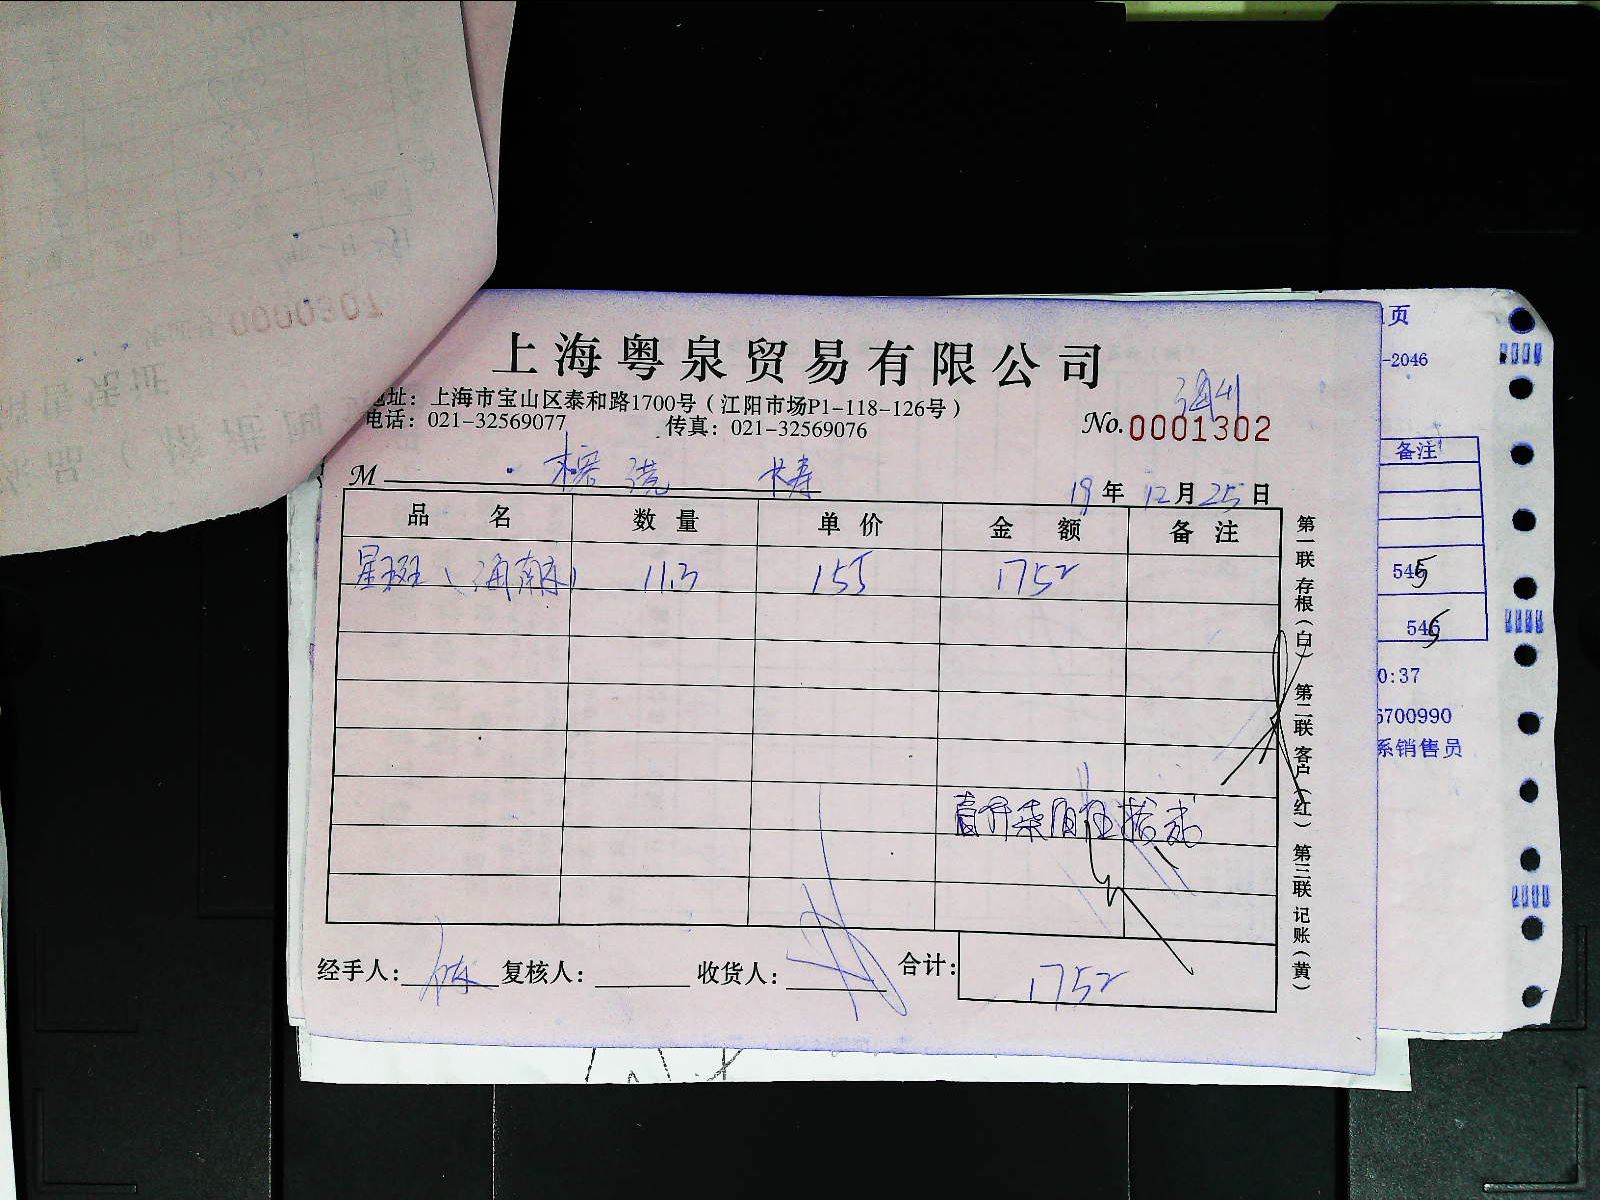 上海粤泉贸易有限公司
地址：上海市宝山区泰和路1700号（江阳市场P1-118-126号）
电话：021-32569077 传真：021-32569076
No.0001302
M 榕港 长寿
19年12月25日
品名 数量 单价 金额 备注
星斑（海南东） 11.3 155 1752
壹仟柒佰伍拾贰
经手人： 复核人： 收货人： 合计：1752
第一联存根（白） 第二联客户（红） 第三联记账（黄）
页
-2046
备注
545
545
0:37
6700990
系销售员